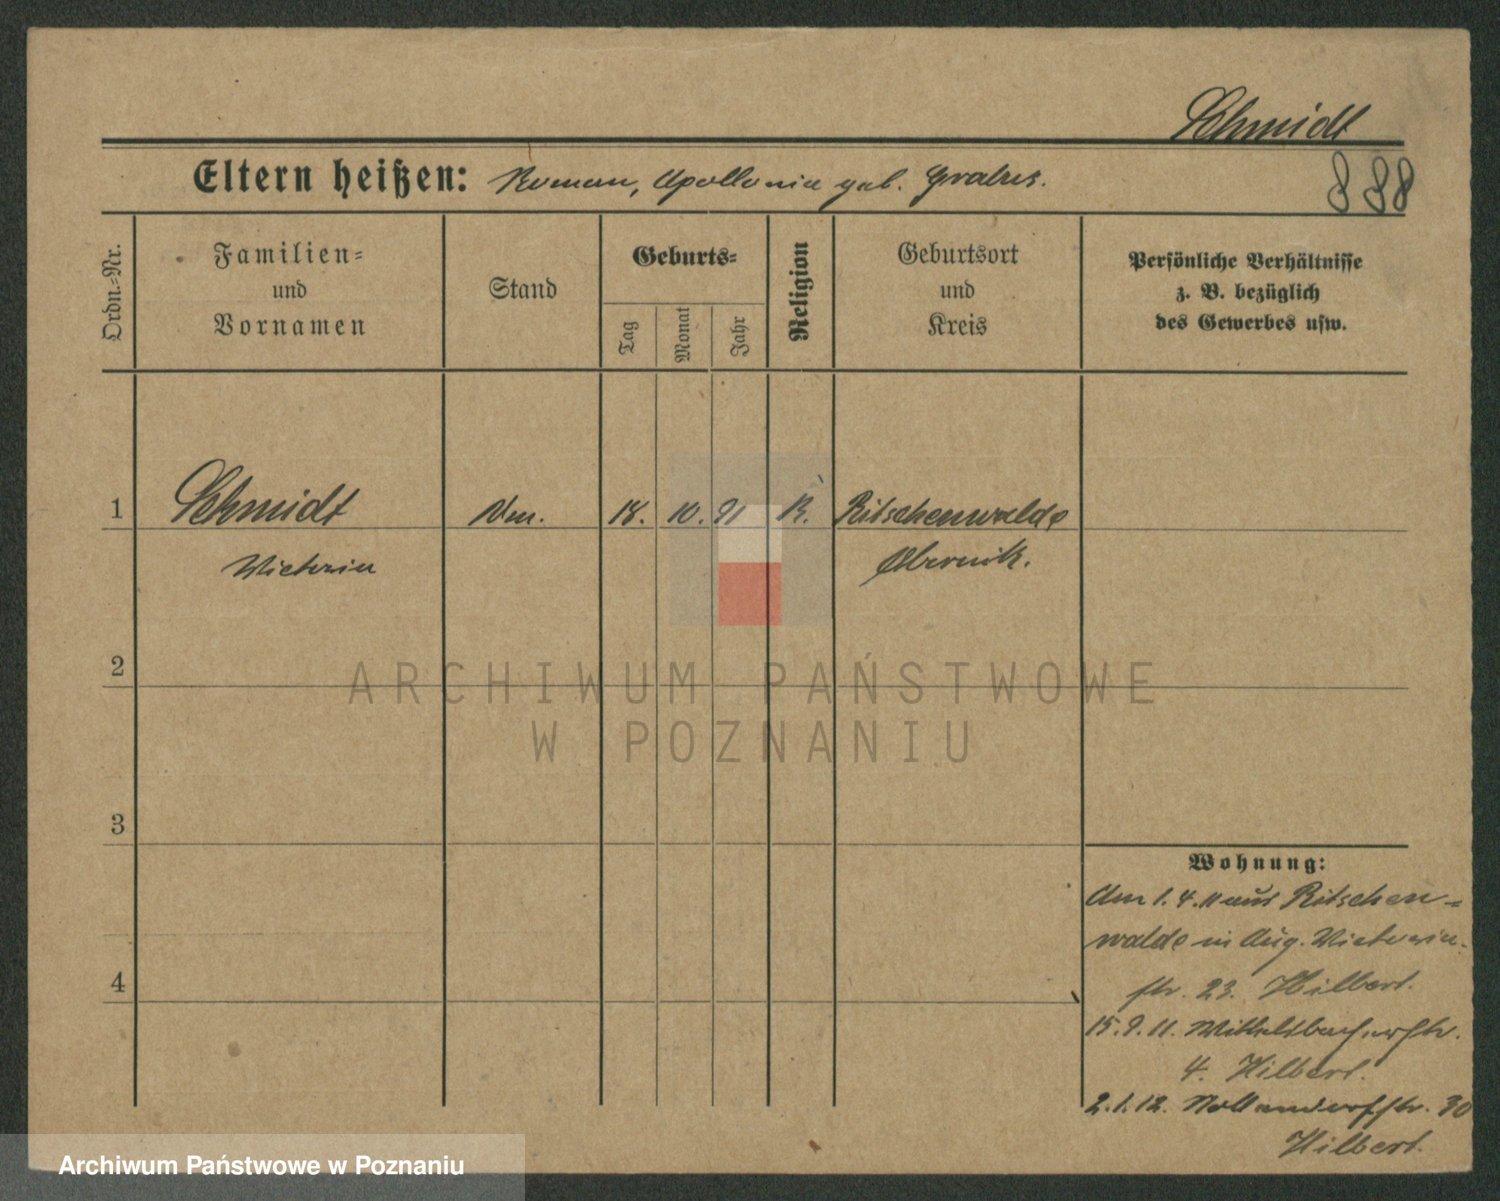 Schmidt
Eltern heißen: Roman, Apollonia geb. Grabus.
888
Ordn.-Nr.
Familien-
und
Vornamen
Stand
Geburts-
Tag
Monat
Jahr
Religion
Geburtsort
und
Kreis
Persönliche Verhältnisse
z. B. bezüglich
des Gewerbes usw.
1 Schmidt 18. 10. 91 K. Ritschenwalde
Victoria Obornik.
2
ARCHIWUM PAŃSTWOWE
W POZNANIU
3
Wohnung:
Am 1. 4. 11 aus Ritschen-
walde in Aug. Victoria-
str. 23. Hilbert.
15. 9. 11. Wittelsbacherstr.
4. Hilbert.
4
2. 1. 12. Nollendorfstr. 30
Hilbert.
Archiwum Państwowe w Poznaniu